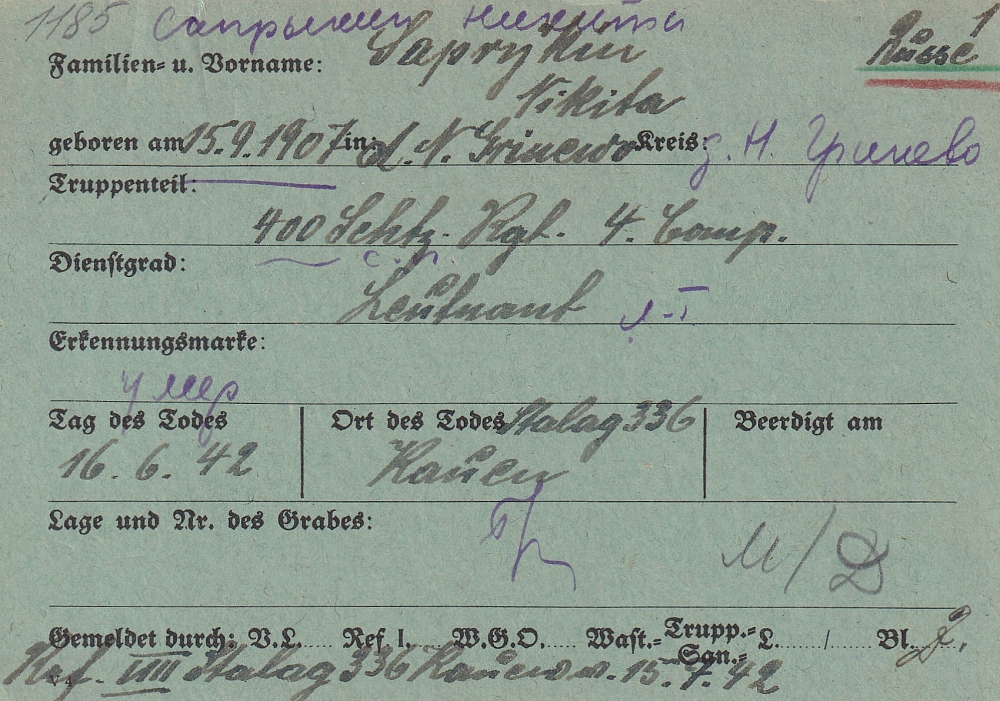 1185 Сапрыкин Никита
Familien- u. Vorname: Saprykin Russe 1
Nikita
geboren am 15.9.1907 in: d. N. Grinewo Kreis: д. Н. Гринево
Truppenteil:
400 Schtz. Rgt. 4. Comp.
с.п.
Dienstgrad:
Leutnant л-т
Erkennungsmarke:
умер
Tag des Todes Ort des Todes Stalag 336 Beerdigt am
16. 6. 42 Kauen
Lage und Nr. des Grabes:
M/D
Gemeldet durch: V.L. Ref. I. W.G.O. Wast.- Trupp.- San.- L. / Bl. 2,
Ref. VIII Stalag 336 Kauen v. 15. 7. 42